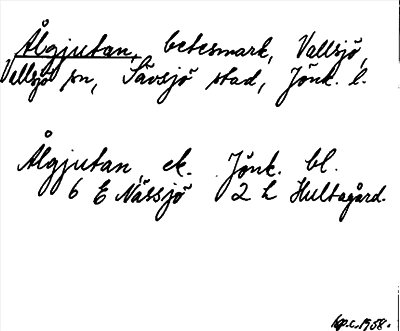 Ålgjutan, betesmark, Vallsjö,
Vallsjö sn, Sävsjö stad, Jönk. l.
Ålgjutan, ek. Jönk. bl.
6 E Nässjö 2 h Hultagård.
1958.